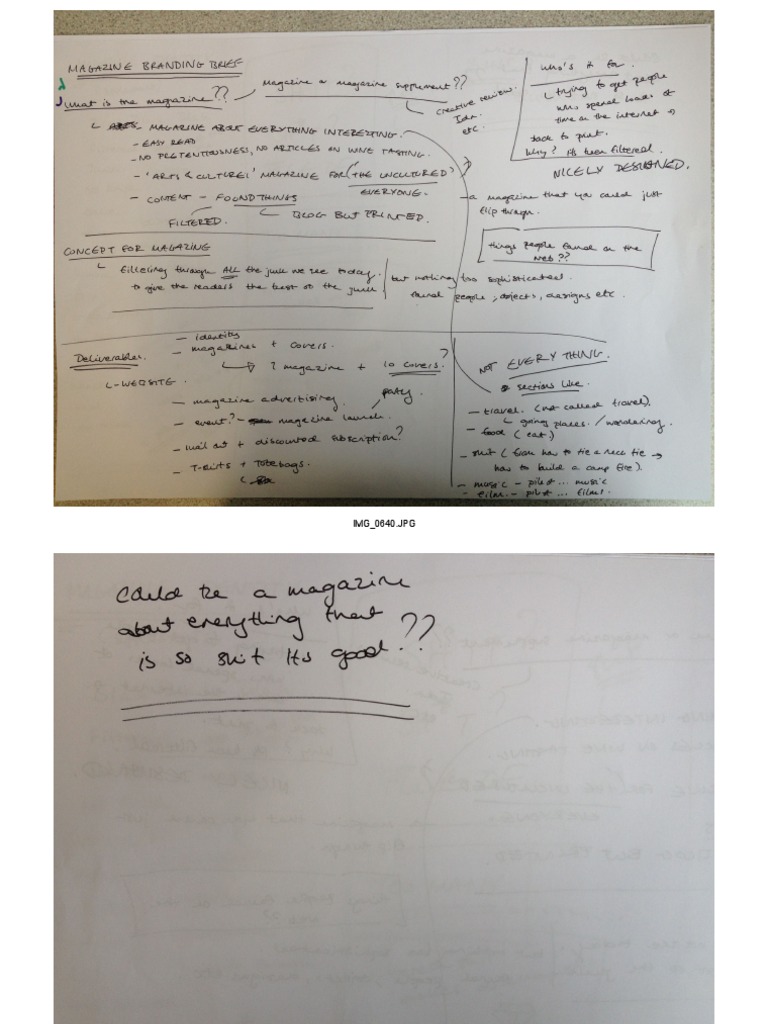 MAGAZINE BRANDING BRIEF
What is the magazine??
Magazine or magazine supplement??
creative review.
Idn.
etc.
- MAGAZINE ABOUT EVERYTHING INTERESTING.
- EASY READ
- NO PRETENTIOUSNESS, NO ARTICLES ON WINE TASTING.
- 'ARTS & CULTURE' MAGAZINE FOR (THE UNCULTURED)
EVERYONE.
- CONTENT - FOUND THINGS
FILTERED.
BLOG BUT PRINTED.
who's it for.
trying to get people
who spend loads of
time on the internet →
back to print.
Why? its been filtered.
NICELY DESIGNED.
- a magazine that you could just
flip through.
things people found on the
web??
CONCEPT FOR MAGAZINE
filtering through ALL the junk we see today.
to give the readers the best of the junk
but nothing too sophisticated.
found people, objects, designs etc.
Deliverables.
- WEBSITE.
- identity
- magazines + covers.
1 magazine + 10 covers. ?
- magazine advertising.
party.
- event? - magazine launch.
- mail out + discounted subscription?
- T-shirts + Totebags.
NOT EVERYTHING.
sections like.
- travel. (not called travel).
going places. / wandering.
- food (eat.)
- shit (from how to tie a neck tie →
how to build a camp fire).
- music - ... music
- film. - ... films.
IMG_0640.JPG
Could be a magazine
about everything that
is so shit its good??